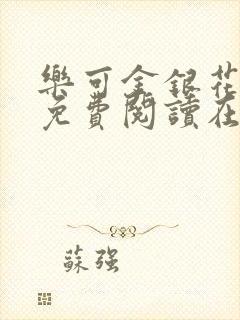 樂可金銀花
免費閱讀在
蘇強